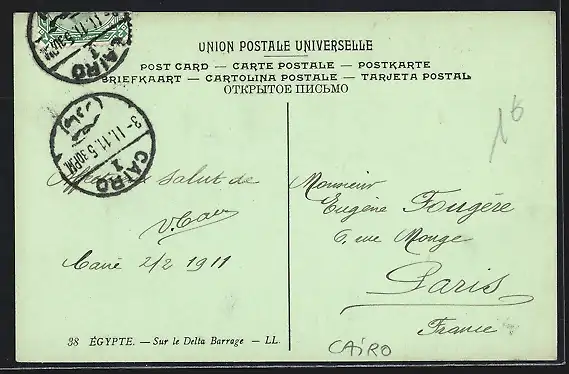 UNION POSTALE UNIVERSELLE
POST CARD — CARTE POSTALE — POSTKARTE
BRIEFKAART — CARTOLINA POSTALE — TARJETA POSTAL
ОТКРЫТОЕ ПИСЬМО
CAIRO
1
3-II.11.5 30PM
CAIRO
1
salut de
Caire 2/2 1911
Monsieur
Eugène Fougère
6, rue Monge
Paris
France
38 ÉGYPTE. — Sur le Delta Barrage — LL.
CAIRO